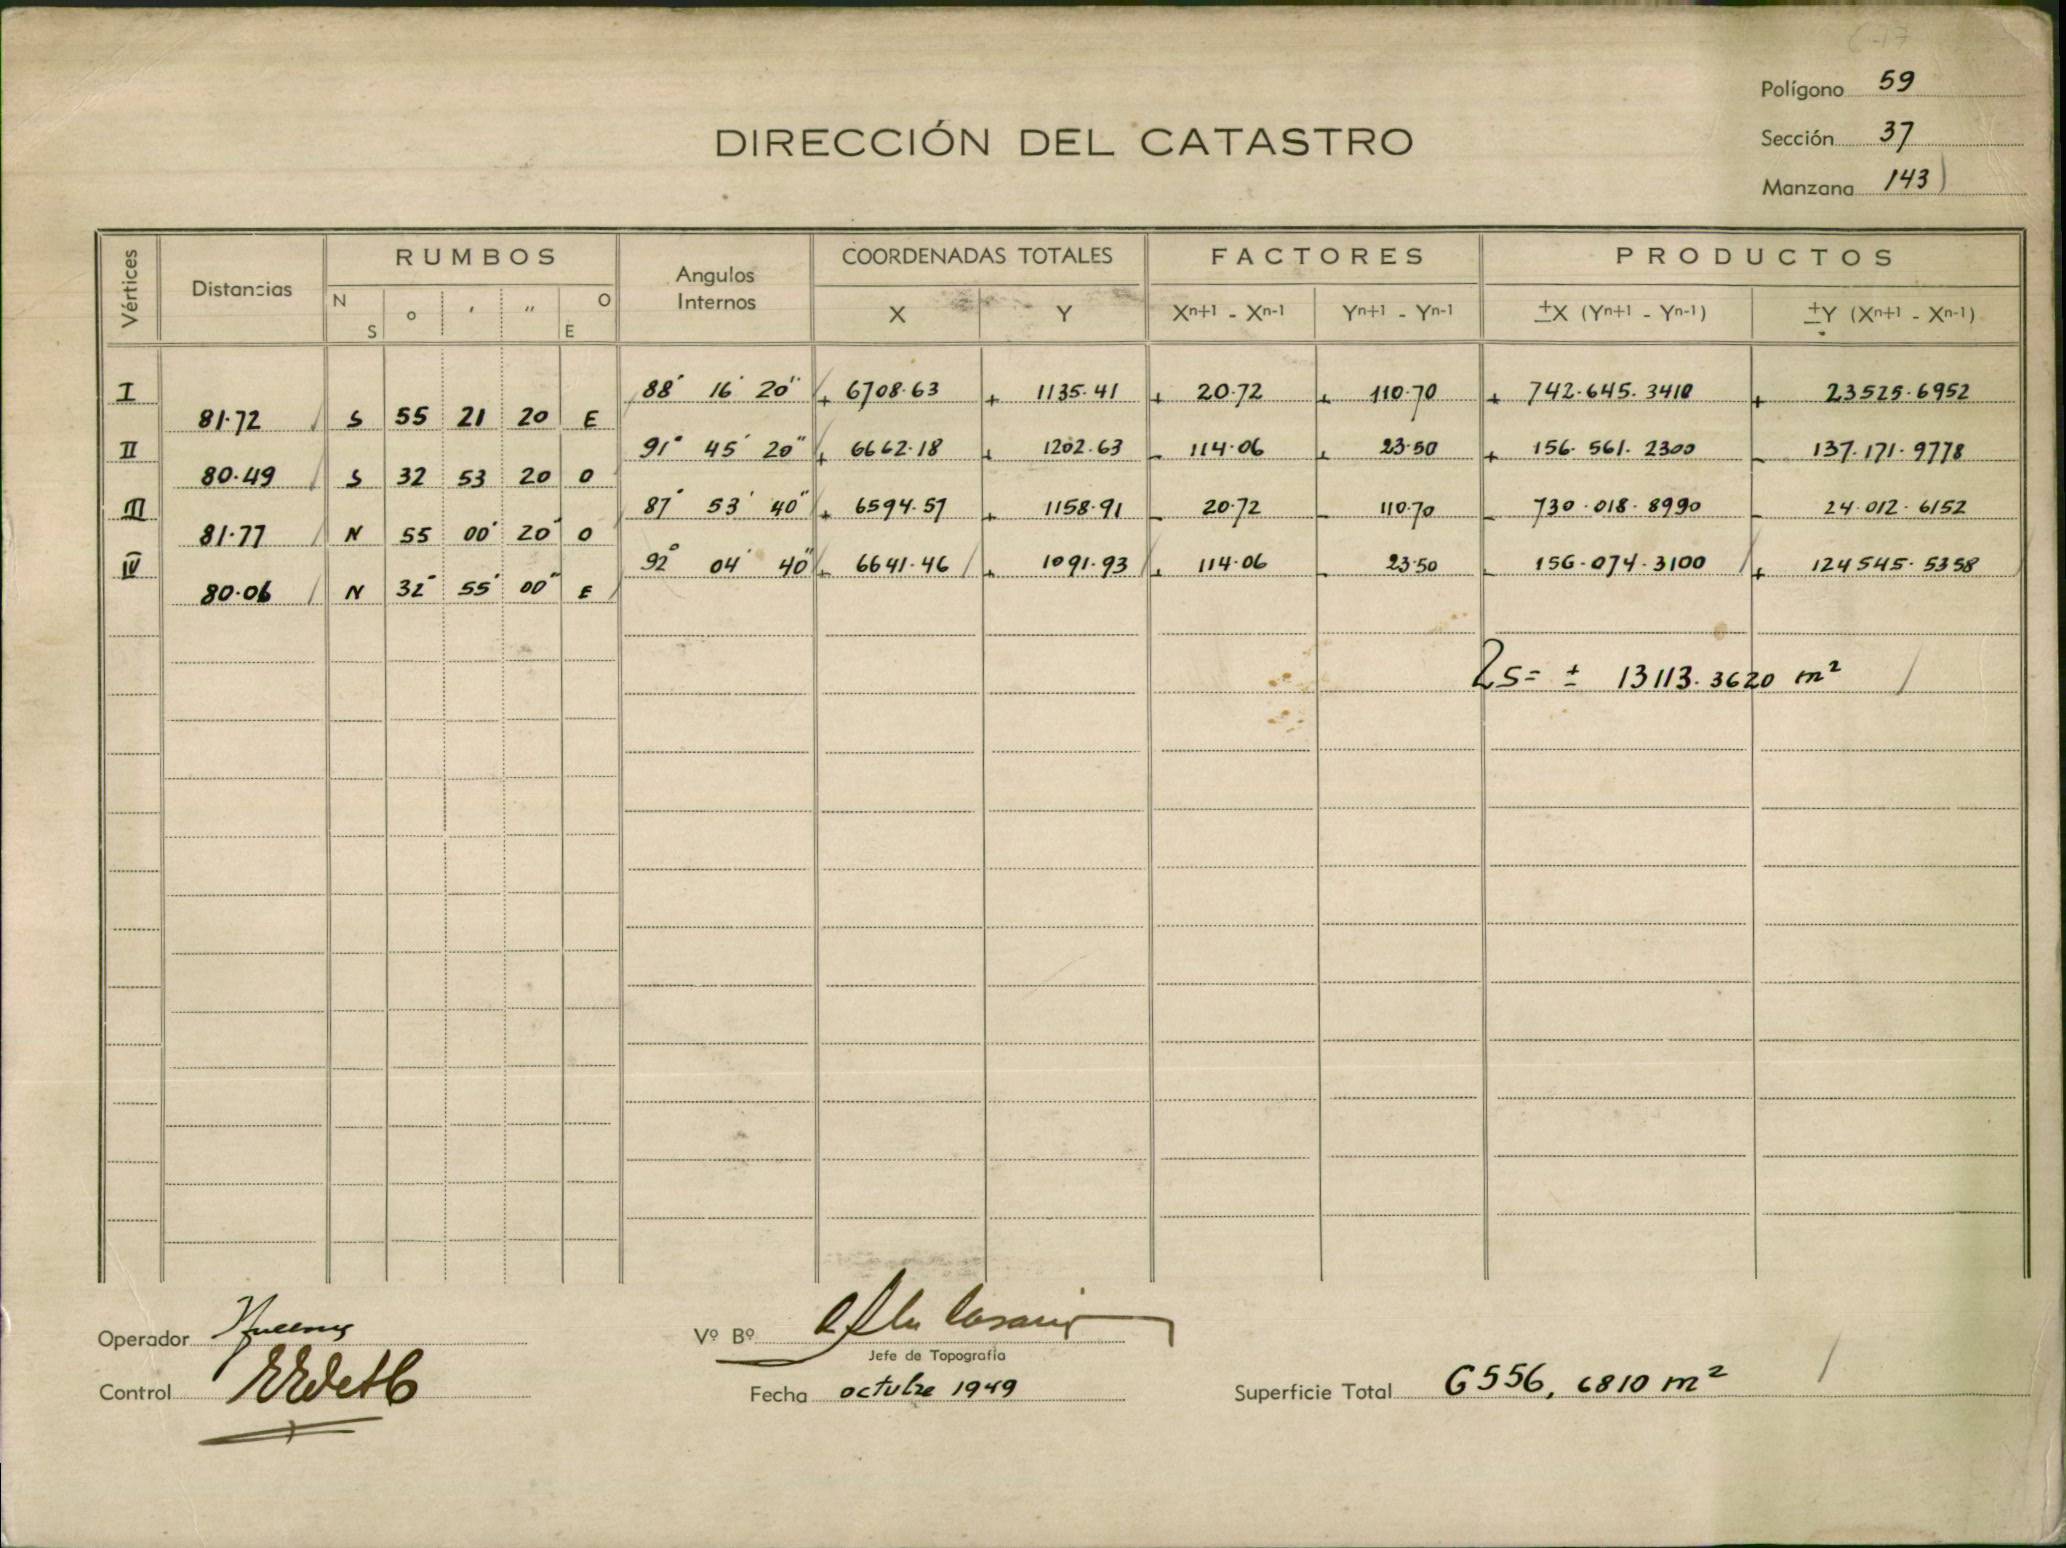 Polígono 59
DIRECCIÓN DEL CATASTRO
Sección 37
Manzana 143
Vértices Distancias RUMBOS Angulos Internos COORDENADAS TOTALES FACTORES PRODUCTOS
N S o ' " O E X Y Xn+1 - Xn-1 Yn+1 - Yn-1 ±X (Yn+1 - Yn-1) ±Y (Xn+1 - Xn-1)
I 88° 16' 20" + 6708.63 + 1135.41 + 20.72 + 110.70 + 742.645.3410 + 23525.6952
81.72 S 55 21 20 E
II 91° 45' 20" + 6662.18 + 1202.63 - 114.06 + 23.50 + 156.561.2300 - 137.171.9778
80.49 S 32 53 20 O
III 87° 53' 40" + 6594.57 + 1158.91 - 20.72 - 110.70 - 730.018.8990 - 24.012.6152
81.77 N 55 00' 20" O
IV 92° 04' 40" + 6641.46 + 1091.93 + 114.06 - 23.50 - 156.074.3100 + 124545.5358
80.06 N 32° 55' 00" E
2s= ± 13113.3620 m²
Operador
Vº Bº
Jefe de Topografía
Control
Fecha octubre 1949
Superficie Total 6556, 6810 m²